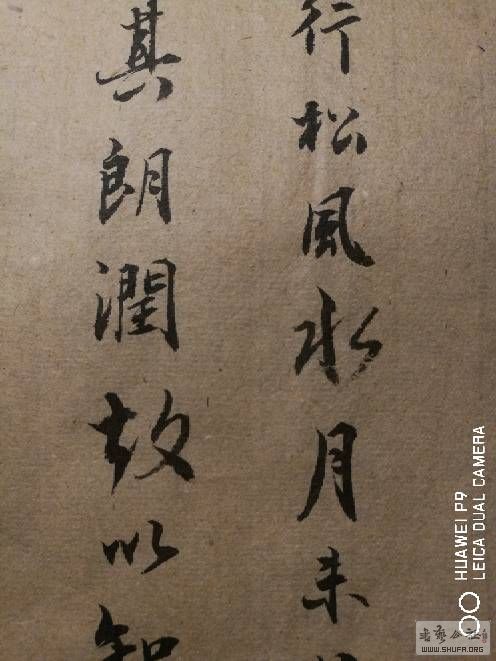 行松風水月未
其朗潤故以知
HUAWEI P9
LEICA DUAL CAMERA
WWW.SHUFA.ORG